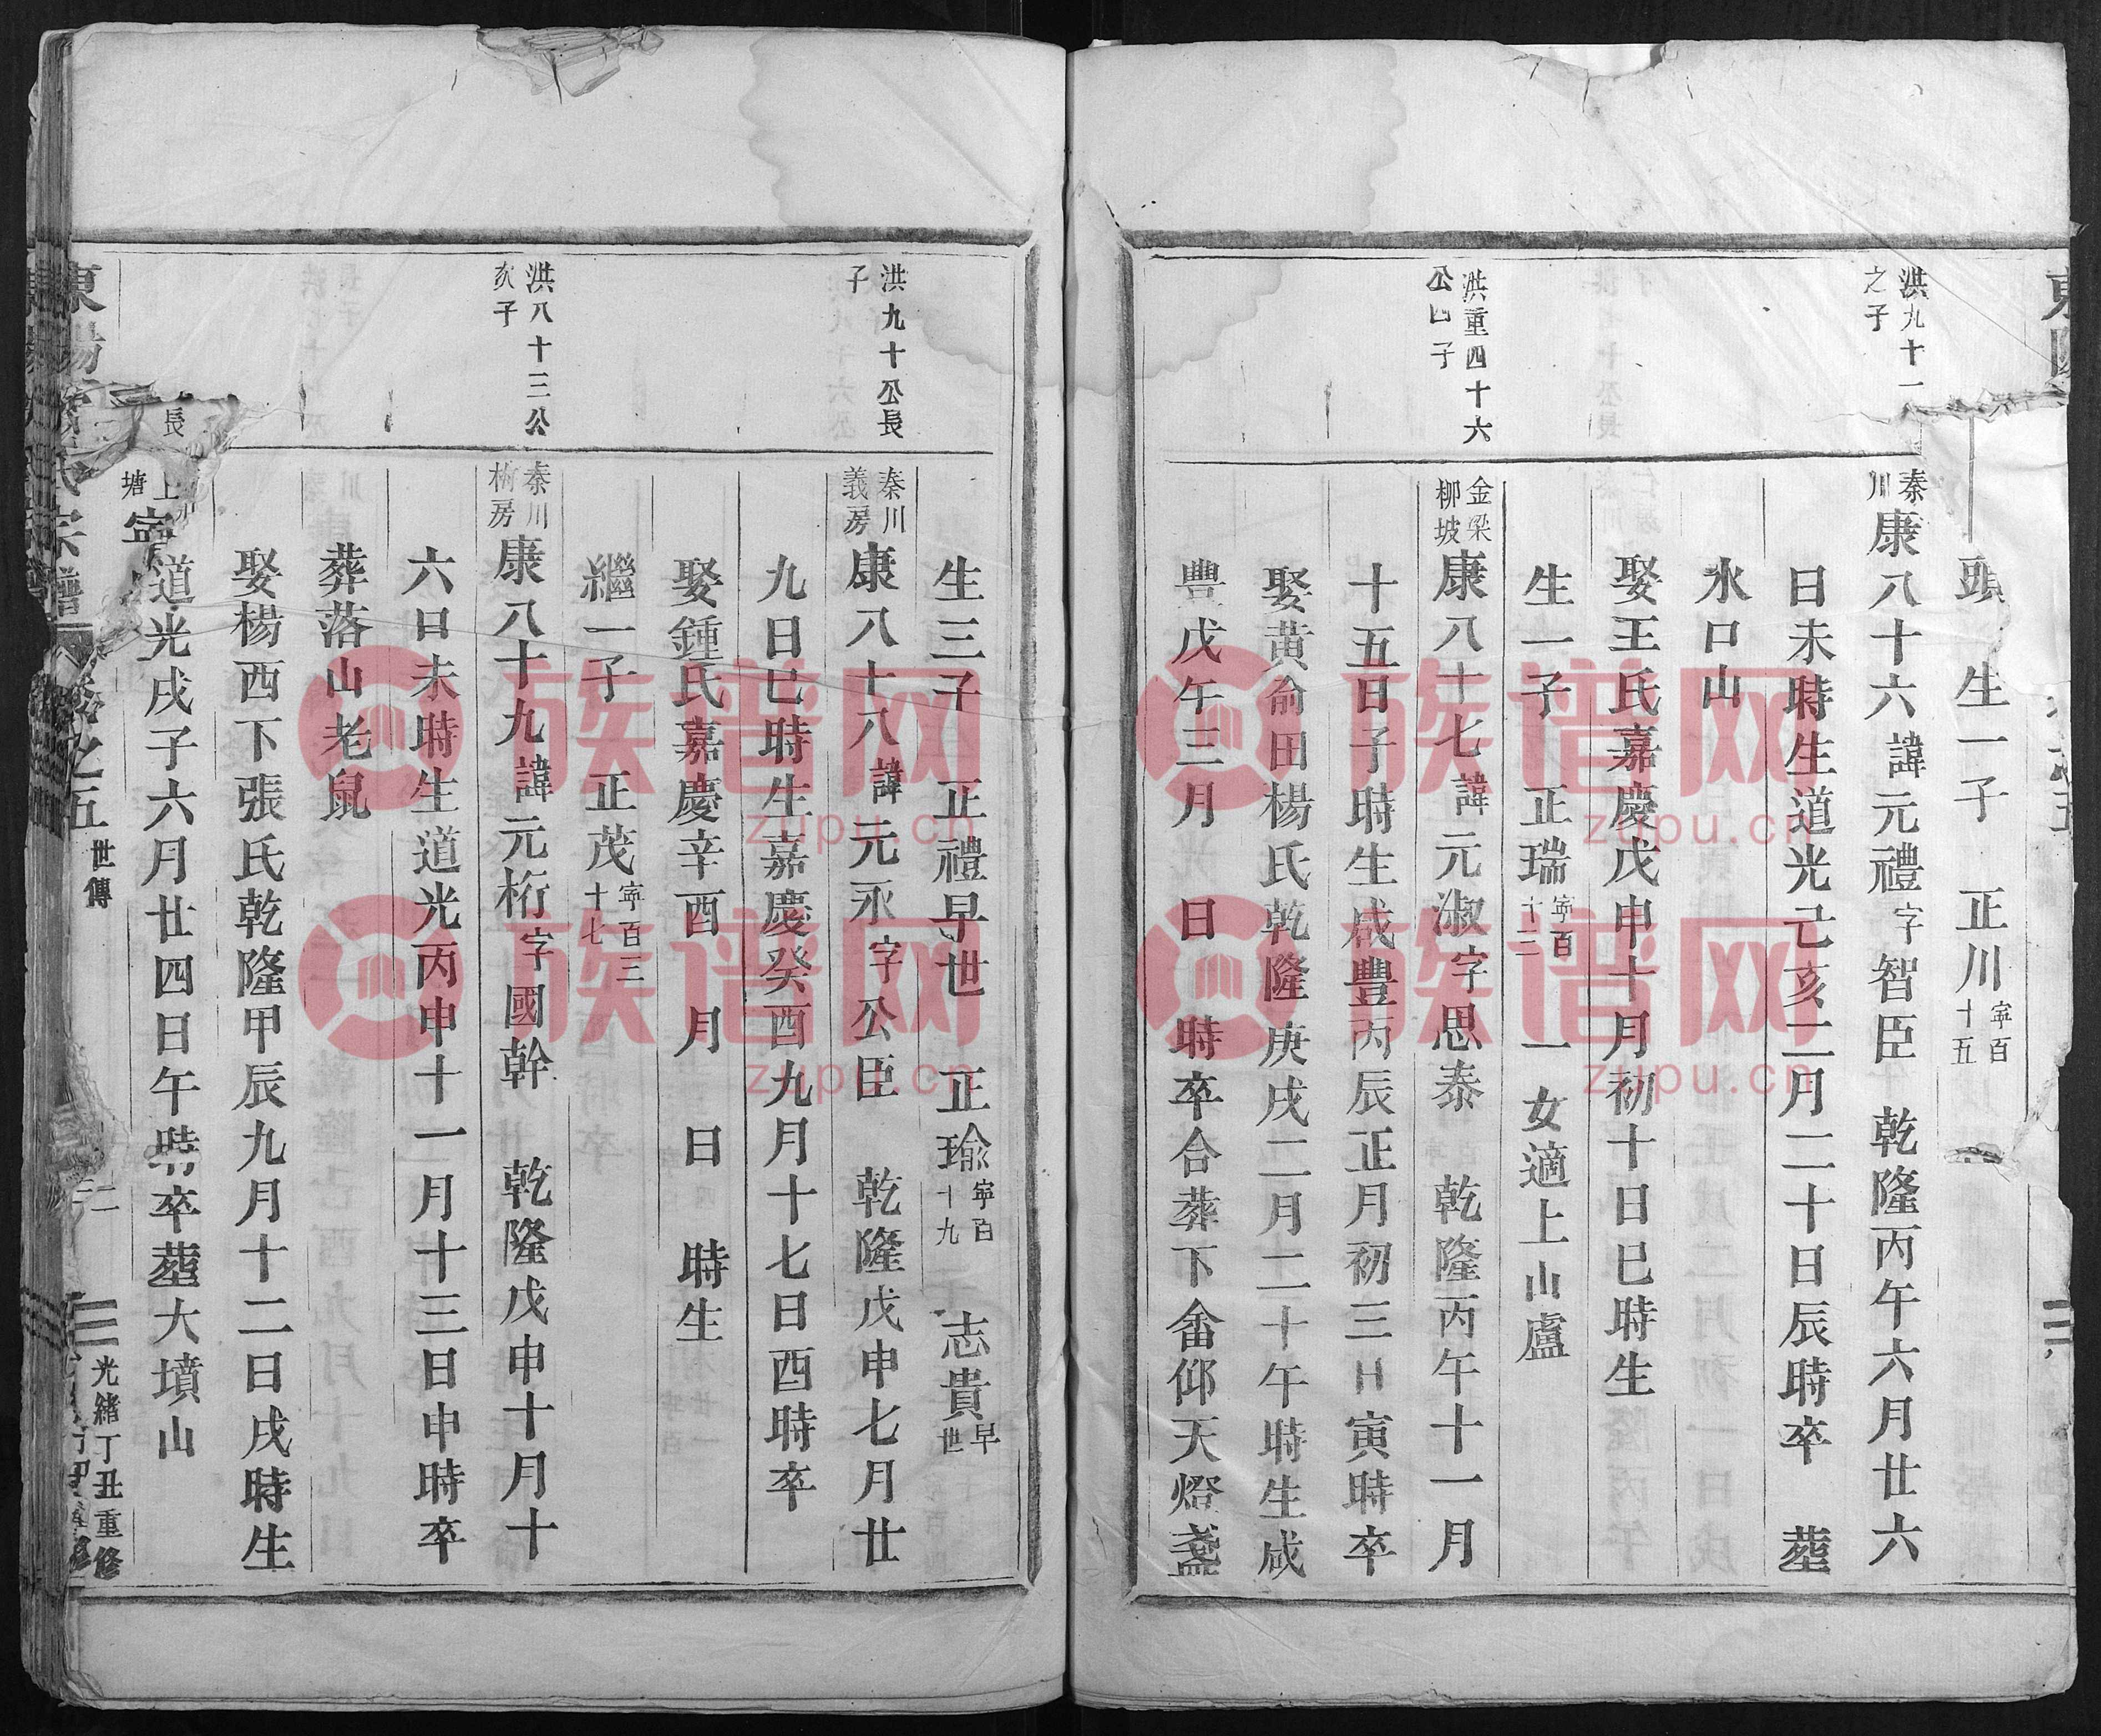 頭　生一子　正川寧百十五
洪九十一
之子
秦川康八十六諱元禮字智臣　乾隆丙午六月廿六
日未時生道光己亥二月二十日辰時卒　葬
水口山
娶王氏嘉慶戊申十月初十日巳時生
生一子　正瑞寧百十二　一女適上山盧
洪重四十六
公四子
金梁柳坡康八十七諱元淑字思泰　乾隆丙午十一月
十五日子時生咸豐丙辰正月初三日寅時卒
娶黄俞田楊氏乾隆庚戌二月二十午時生咸
豐戊午三月　日　時卒合葬下畲仰天燈盞
生三子　正禮早世　正瑜寧百十九　志貴早世
洪九十公長
子
秦川義房康八十八諱元永字公臣　乾隆戊申七月廿
九日巳時生嘉慶癸酉九月十七日酉時卒
娶鍾氏嘉慶辛酉　月　日　時生
繼一子　正茂寧百三十七
洪八十三公
次子
秦川樹房康八十九諱元桁字國幹　乾隆戊申十月十
六日未時生道光丙申十一月十三日申時卒
葬落山老鼠
娶楊西下張氏乾隆甲辰九月十二日戌時生
道光戌子六月廿四日午時卒葬大墳山
長
上
塘
東陽
氏宗譜
卷之五 世傳
光緒丁丑重修
族谱网
zupu.cn
族谱网
zupu.cn
族谱网
zupu.cn
族谱网
zupu.cn